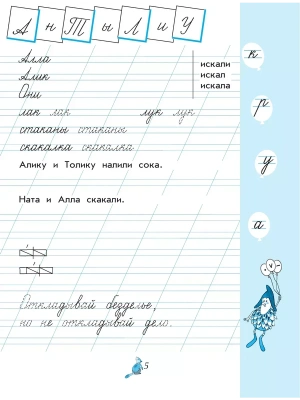 А н Т ы Л и У
Алла
Алик
Они
искали
искал
искала
лак лак лук лук
стаканы стаканы
скакалка скакалка
Алику и Толику налили сока.
Ната и Алла скакали.
Откладывай безделье,
но не откладывай дело.
к
р
у
а
5